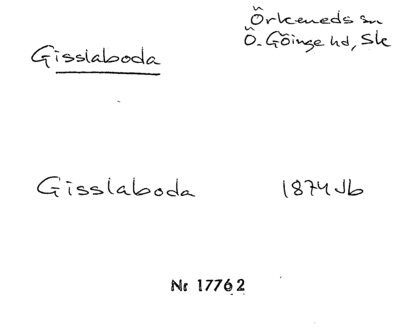 Örkeneds sn
Gisslaboda
Ö. Göinge hd, Sk
Gisslaboda 1874 Jb
Nr 17762